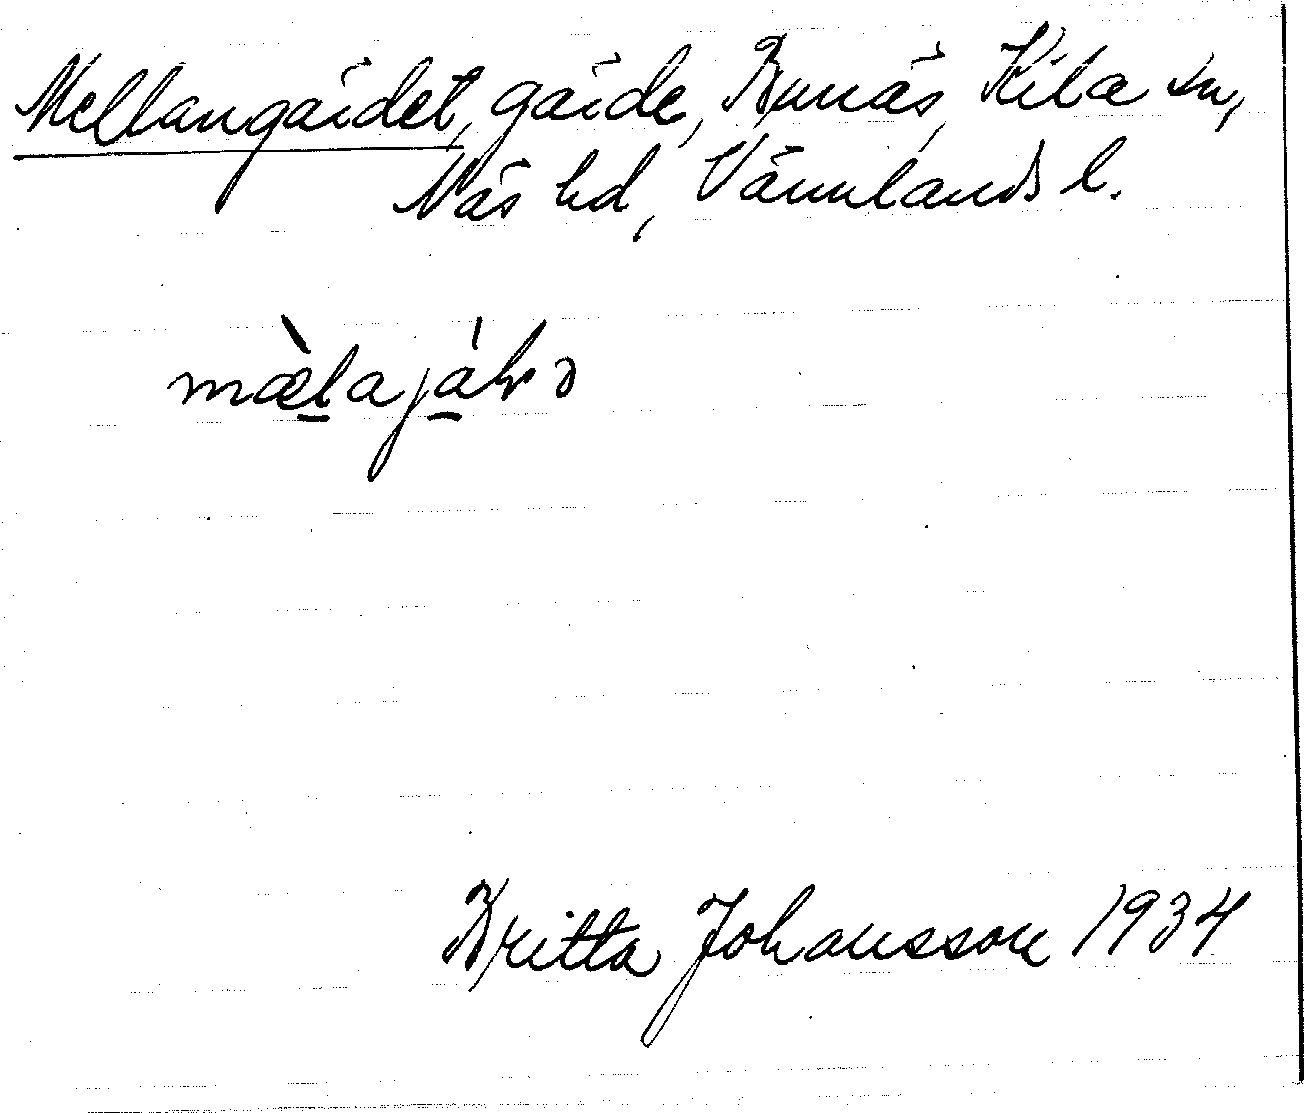 Mellangärdet, gärde, Runäs, Kila sn,
Näs hd, Värmlands l.
Britta Johansson 1934